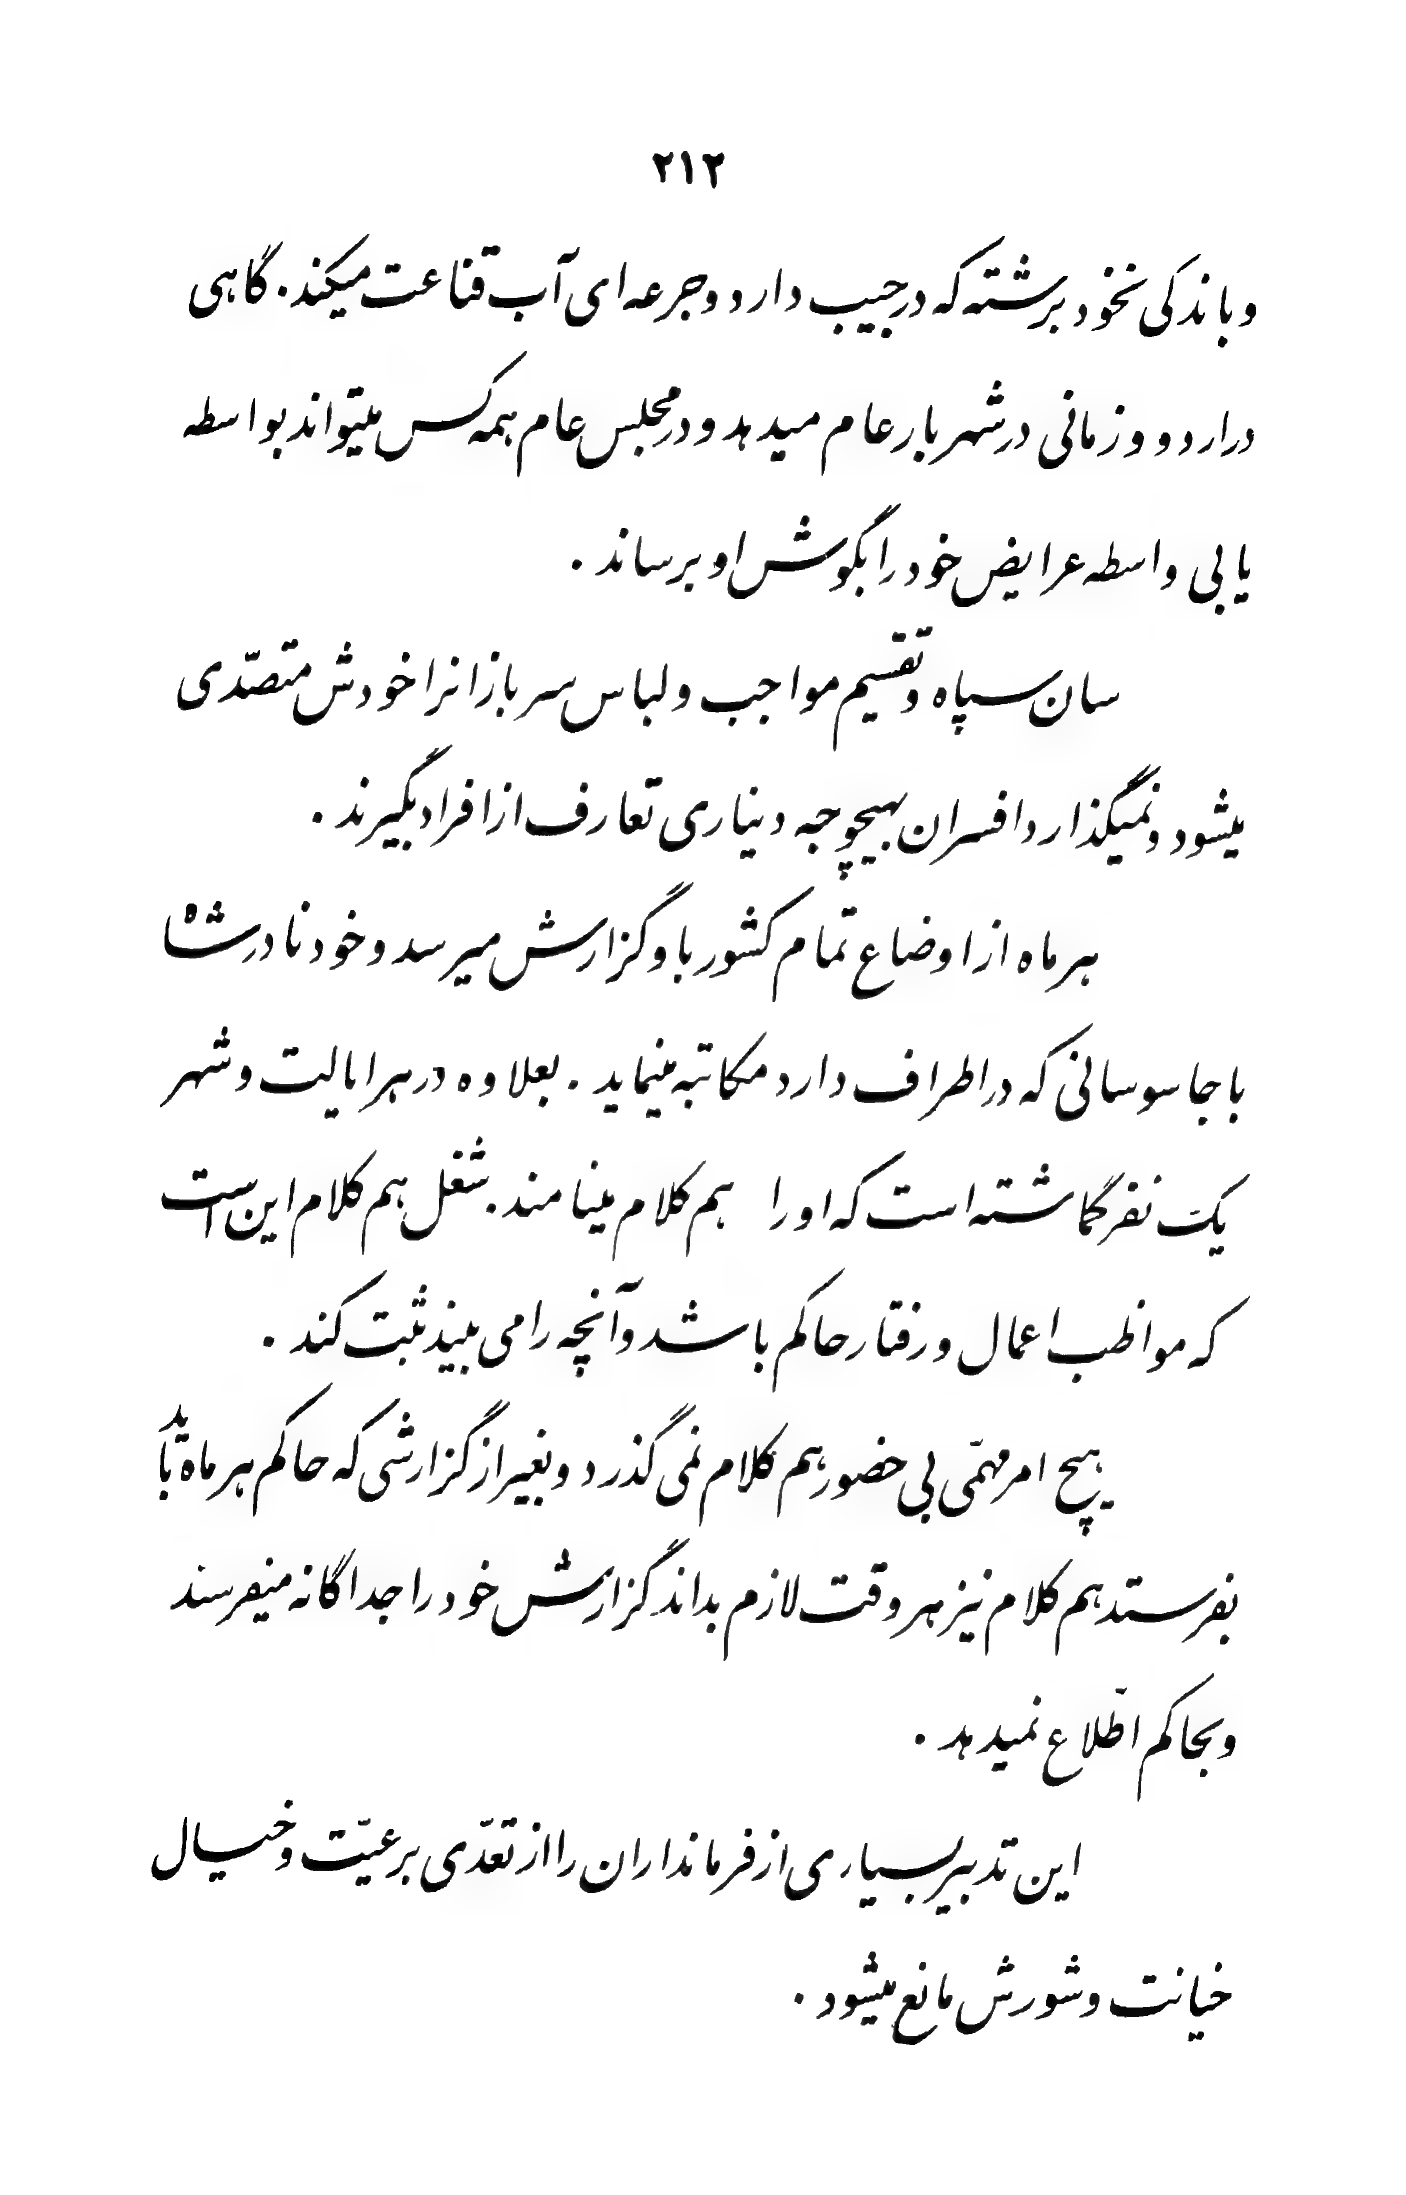 ۲۱۲
و باندکی نخود برشته که در جیب دارد و جرعه ای آب قناعت میکند . گاهی
در اردو و زمانی در شهر بار عام میدهد و در مجلس عام همه کس میتواند بواسطه
یا بی واسطه عرایض خود را بگوش او برساند .
سان سپاه و تقسیم مواجب و لباس سربازانرا خودش متصدّی
میشود و نمیگذارد افسران بهیچوجه دیناری تعارف از افراد بگیرند .
هر ماه از اوضاع تمام کشور باو گزارش میرسد و خود نادرشاه
با جاسوسانی که در اطراف دارد مکاتبه مینماید . بعلاوه در هر ایالت و شهر
یک نفر گماشته است که او را هم کلام مینامند . شغل هم کلام این است
که مواظب اعمال و رفتار حاکم باشد و آنچه را می بیند ثبت کند .
هیچ امر مهمّی بی حضور هم کلام نمی گذرد و بغیر از گزارشی که حاکم هر ماه باید
بفرستد هم کلام نیز هر وقت لازم بداند گزارش خود را جداگانه میفرسند
و بحاکم اطّلاع نمیدهد .
این تدبیر بسیاری از فرمانداران را از تعدّی بر عیّت و خیال
خیانت و شورش مانع میشود .